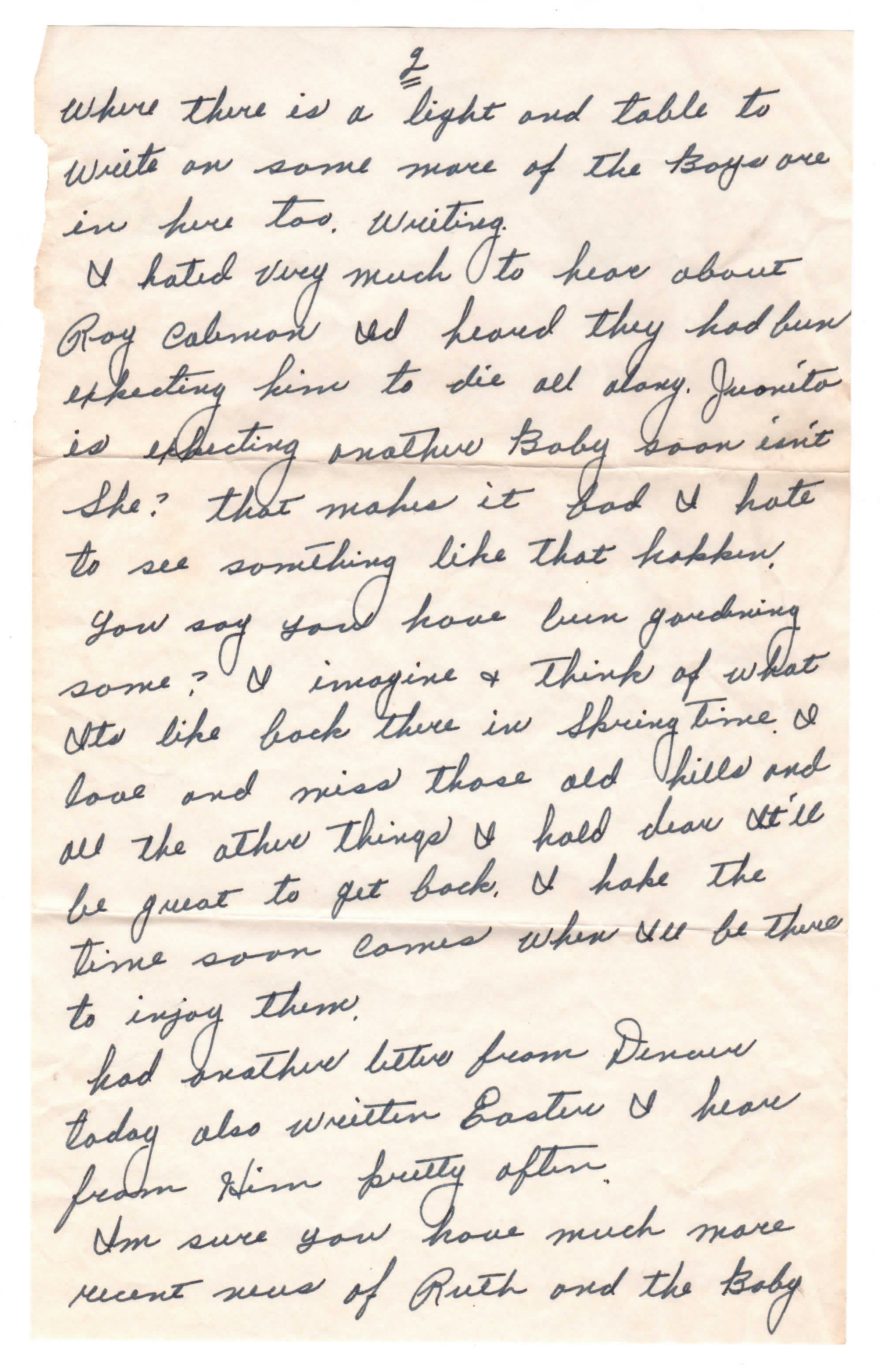 2
Where there is a light and table to
Write on some more of the Boys are
in here too. Writing.
I hated very much to hear about
Roy Colemon I'd heard they had been
expecting him to die all along. Juanita
is expecting another Baby soon isn't
She? that makes it bad I hate
to see something like that happen.
You say you have been gardening
some? I imagine + think of what
Its like back there in Spring time. I
love and miss those old hills and
all the other things I hold dear It'll
be great to get back. I hope the
time soon comes when I'll be there
to injoy them.
had another letter from Denver
today also written Easter I hear
from Him pretty often.
Im sure you have much more
recent news of Ruth and the Baby